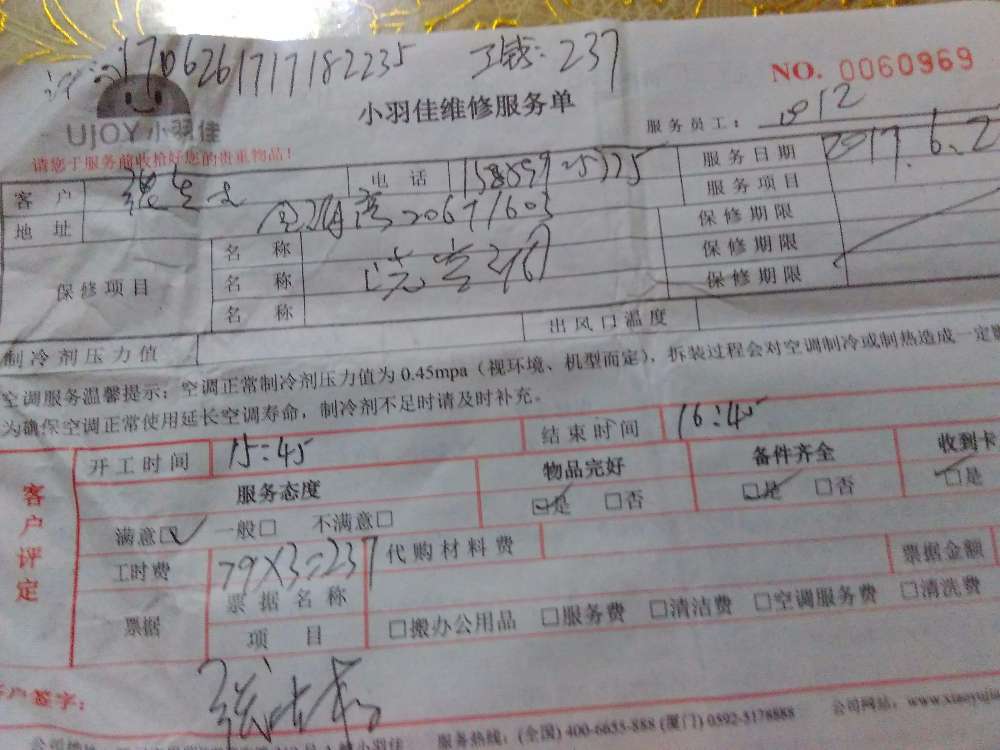 170626171718 2235 工钱：237
NO. 0060969
UJOY小羽佳
小羽佳维修服务单
服务员工：
请您于服务前收拾好您的贵重物品！
客户 电话 服务日期 2017.6.2
地址 服务项目
保修项目 名称 保修期限
名称 保修期限
名称 保修期限
制冷剂压力值 出风口温度
空调服务温馨提示：空调正常制冷剂压力值为 0.45mpa（视环境、机型而定），拆装过程会对空调制冷或制热造成一定
为确保空调正常使用延长空调寿命，制冷剂不足时请及时补充。
客户评定
开工时间 15:45 结束时间 16:45
服务态度 物品完好 备件齐全 收到卡
满意☑ 一般□ 不满意□ ☑是 □否 ☑是 □否 ☑是
工时费 79×3=237 代购材料费 票据金额
票据 票据名称
项目 □搬办公用品 □服务费 □清洁费 □空调服务费 □清洗费
客户签字：
服务热线：(全国) 400-6655-888 (厦门) 0592-5178888 公司网站：www.xiaoyujia